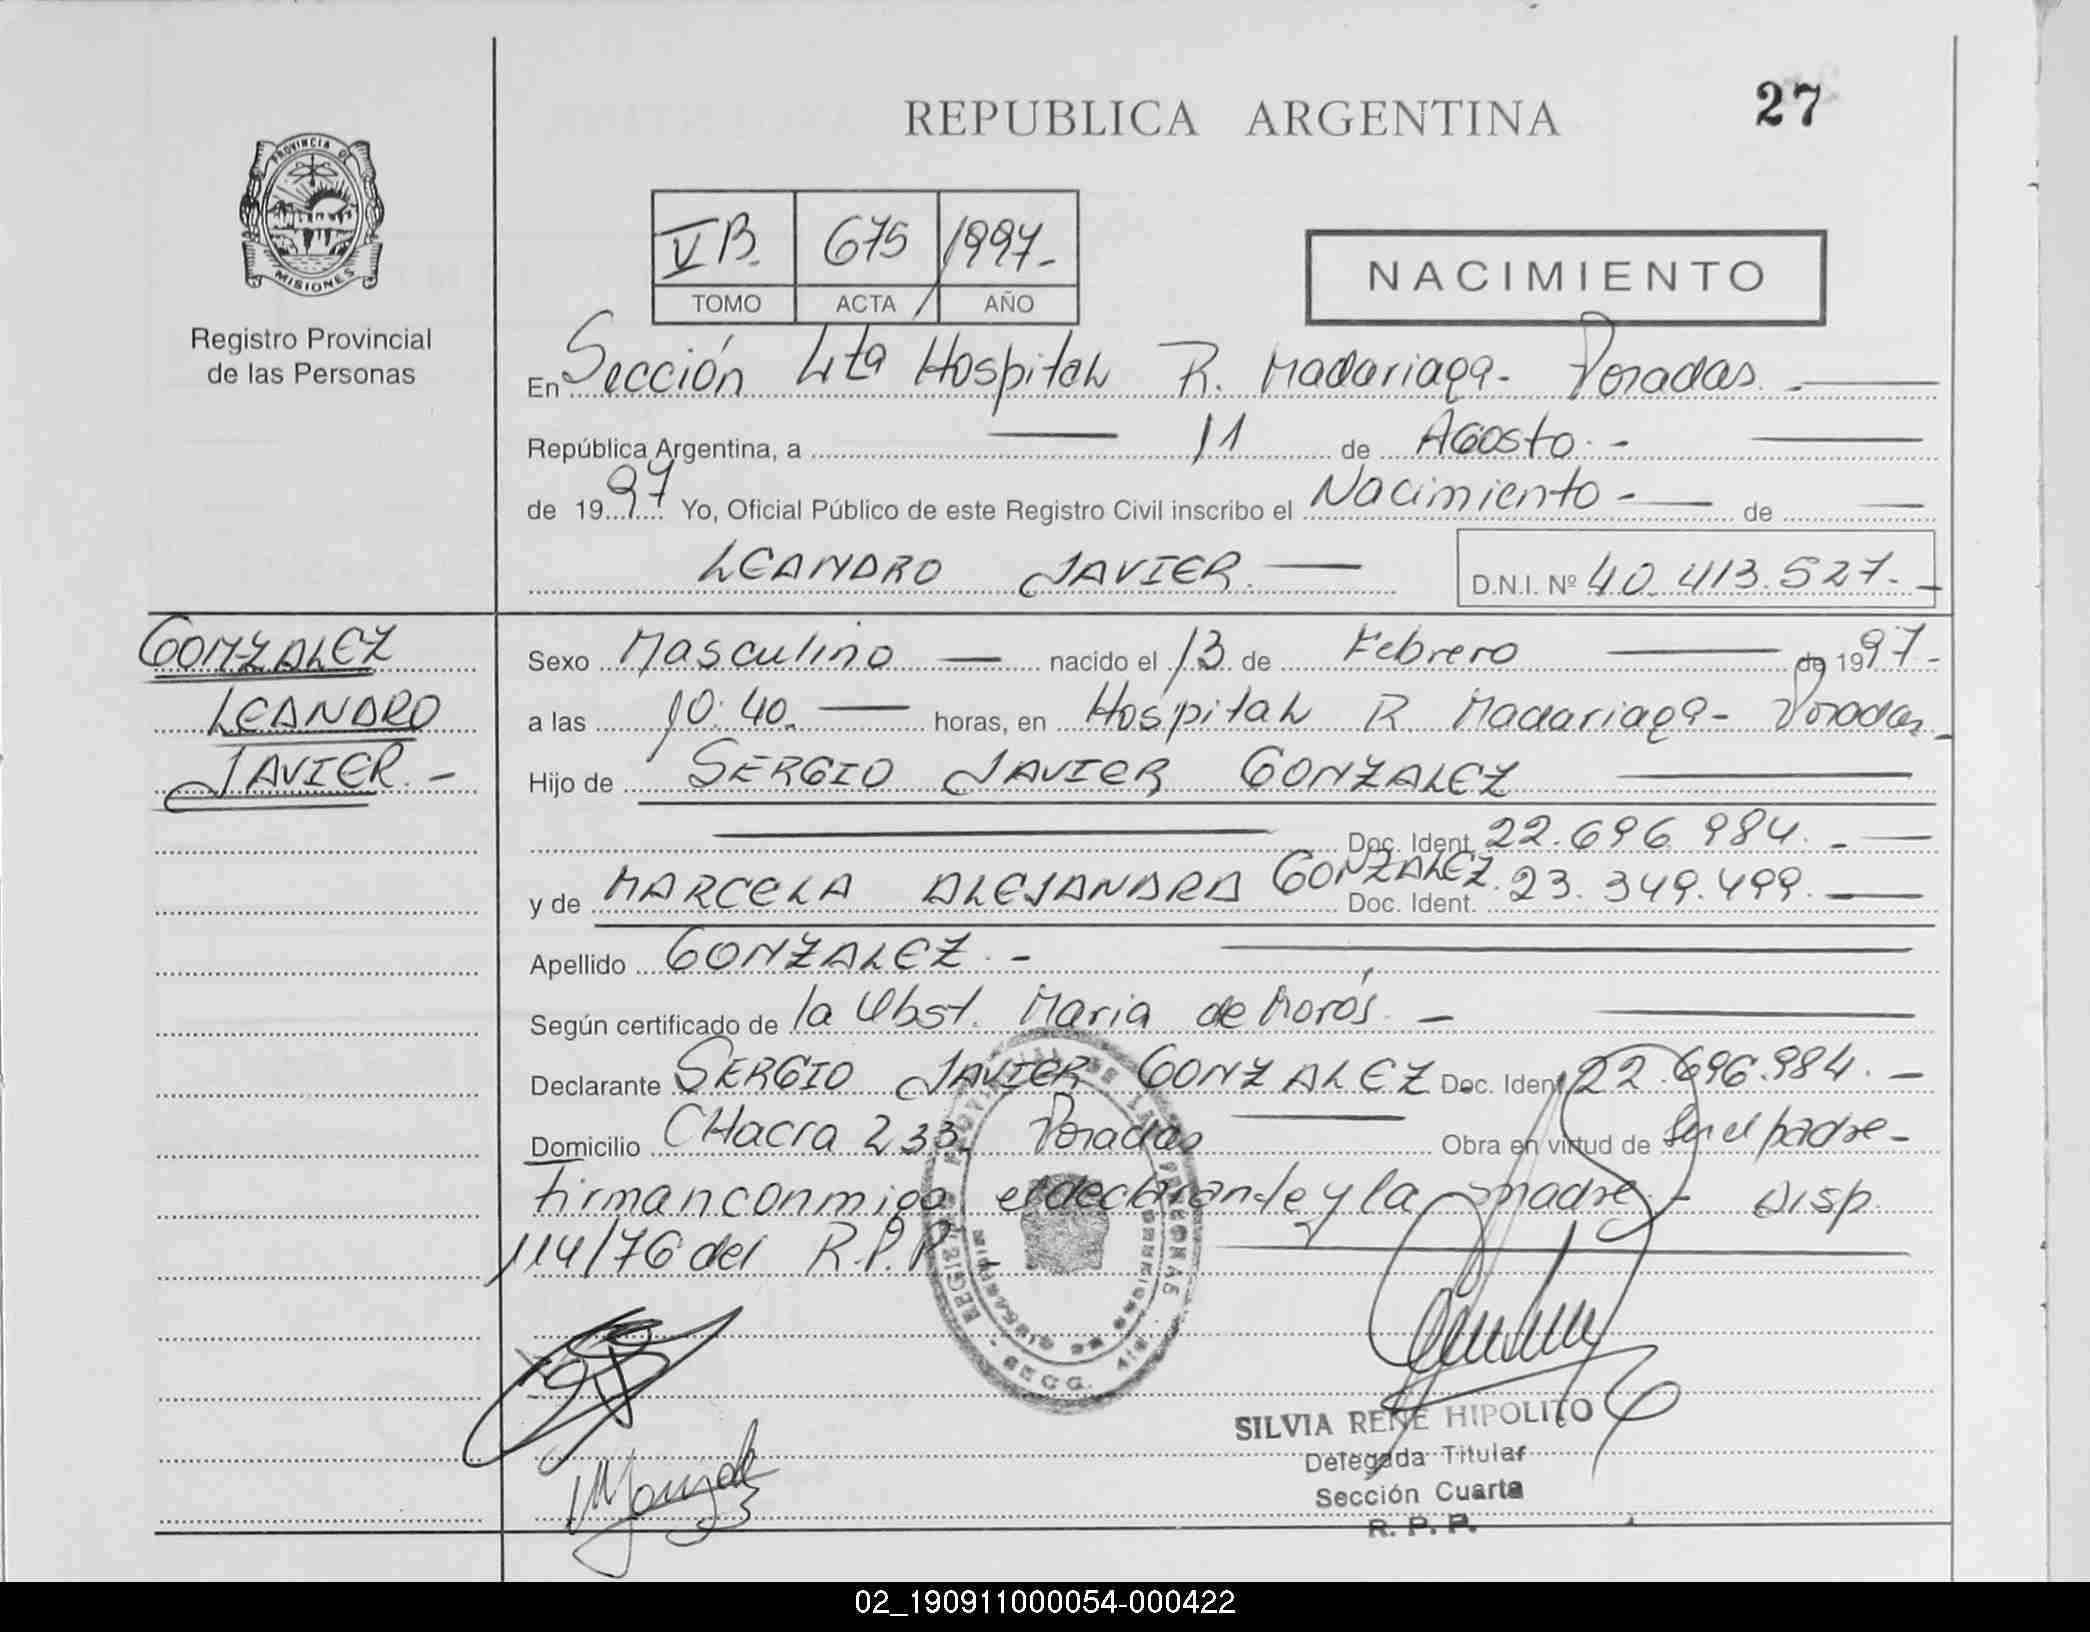 REPUBLICA ARGENTINA
27
PROVINCIA DE
MISIONES
Registro Provincial
de las Personas
V B. 675 1997-
TOMO ACTA AÑO
NACIMIENTO
En Sección 4ta Hospital R. Madariaga- Posadas.-
República Argentina, a 11 de Agosto.-
de 1997 Yo, Oficial Público de este Registro Civil inscribo el Nacimiento- de
LEANDRO JAVIER. D.N.I. Nº 40.413.527.-
GONZALEZ
LEANDRO
JAVIER.-
Sexo Masculino nacido el 13 de Febrero de 1997-
a las 10:40. horas, en Hospital R. Madariaga- Posadas-
Hijo de SERGIO JAVIER GONZALEZ
Doc. Ident. 22.696.984.-
y de MARCELA ALEJANDRA GONZALEZ. Doc. Ident. 23.349.499.
Apellido GONZALEZ.-
Según certificado de la Obst. Maria de Morós.-
Declarante SERGIO JAVIER GONZALEZ Doc. Ident. 22.696.984.-
Domicilio CHacra 233, Posadas Obra en virtud de Ser el padre-
Firman conmigo el declarante y la madre.- Disp.
114/76 del R.P.P.-
SILVIA RENE HIPOLITO
Delegada Titular
Sección Cuarta
R. P. P.
02_190911000054-000422